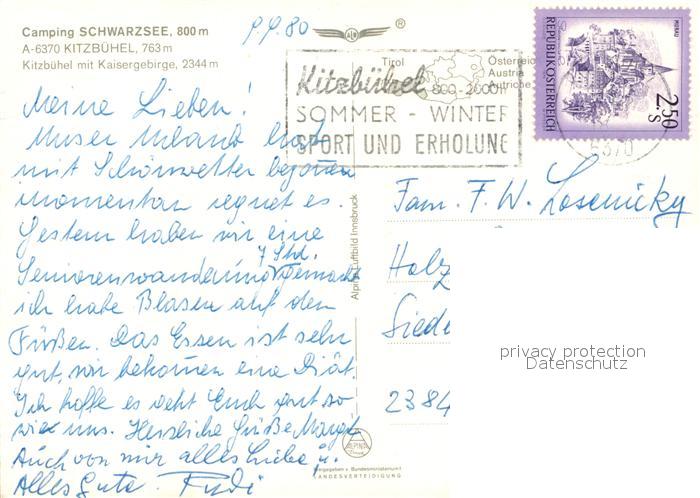 Camping SCHWARZSEE, 800 m
A-6370 KITZBÜHEL, 763 m
Kitzbühel mit Kaisergebirge, 2344 m
9.9.80
®
Tirol
Österreich
Austria
Autriche
Kitzbühel
800 - 2000m
SOMMER - WINTER
SPORT UND ERHOLUNG
6370
REPUBLIK ÖSTERREICH
MURAU
2.50
S
Meine Lieben!
Unser Urlaub hat
mit Schönwetter begonnen
momentan regnet es.
Gestern haben wir eine
7 Std.
Seniorenwanderung gemacht
ich habe Blasen auf den
Füßen. Das Essen ist sehr
gut, wir bekommen eine Diät.
Ich hoffe es geht Euch gut so
wie uns. Herzliche Grüße Margit
Auch von mir alles Liebe u.
Alles Gute Rudi
Fam. F. W. Losenicky
Holz
Siede
2384
Alpine Luftbild Innsbruck
ALPINE
Freigegeben v. Bundesministerium f.
LANDESVERTEIDIGUNG
privacy protection
Datenschutz